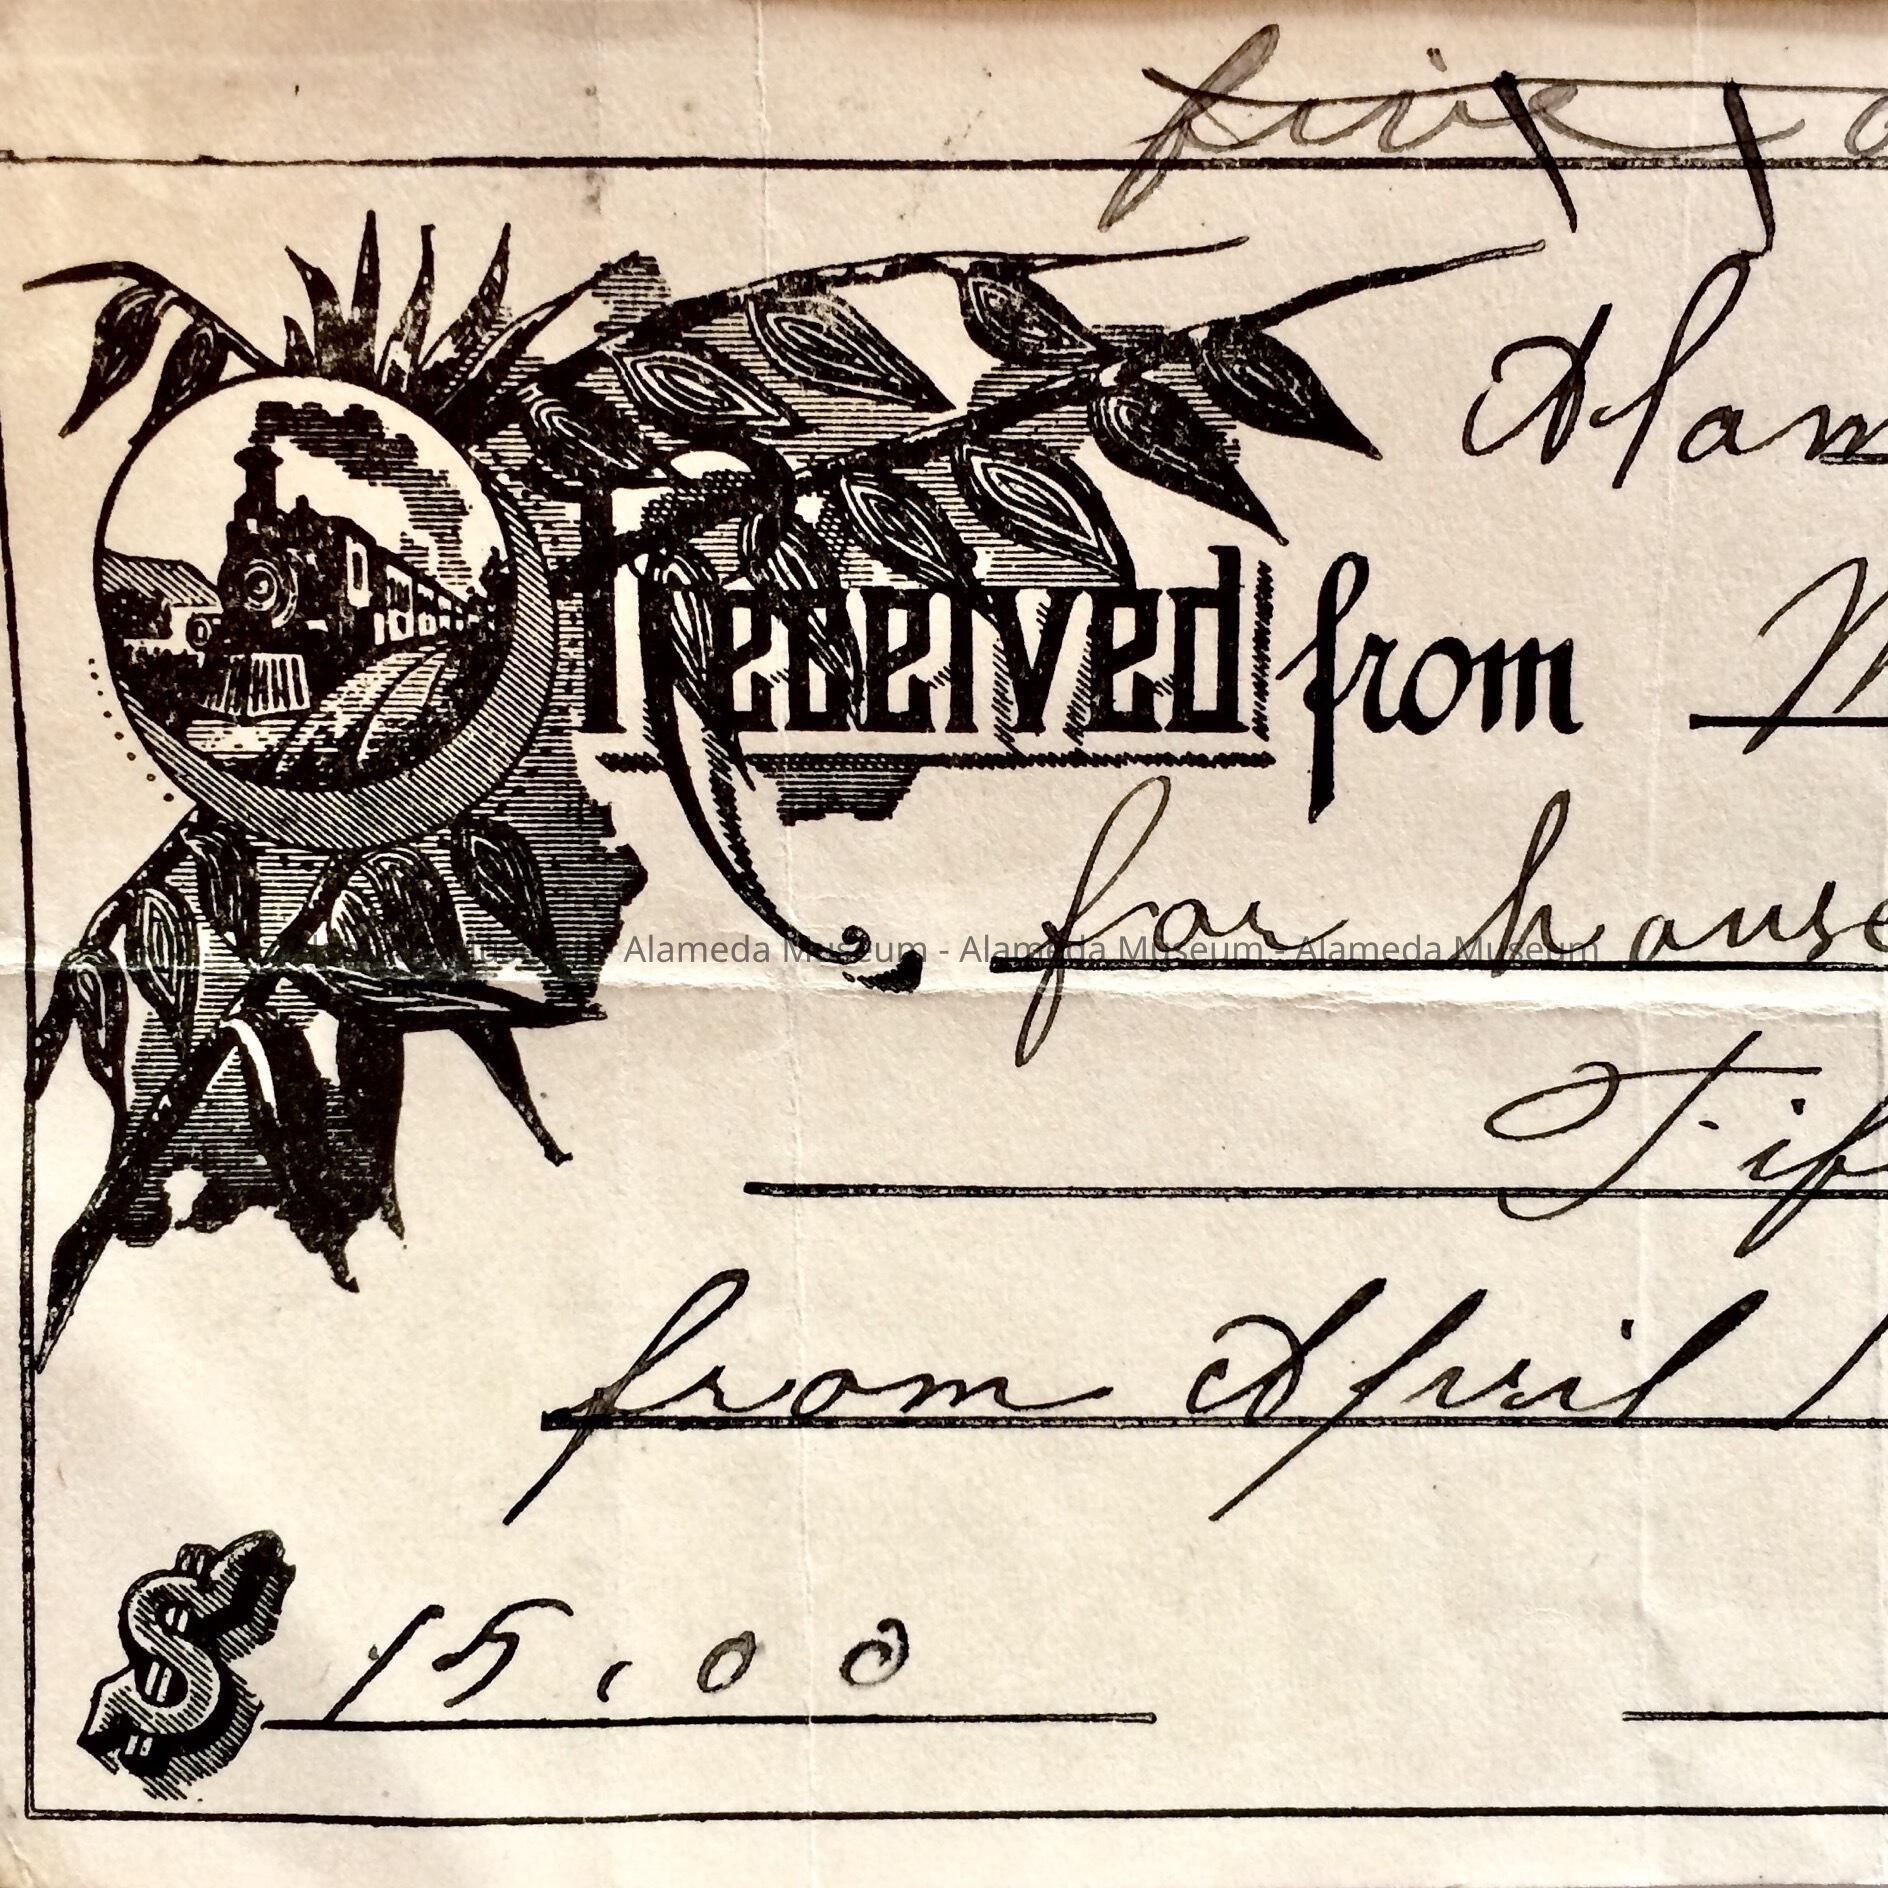 five
Alam
Received from M
for house
Alameda Museum - Alameda Museum - Alameda Museum
Fif
from April 1
$ 15.00